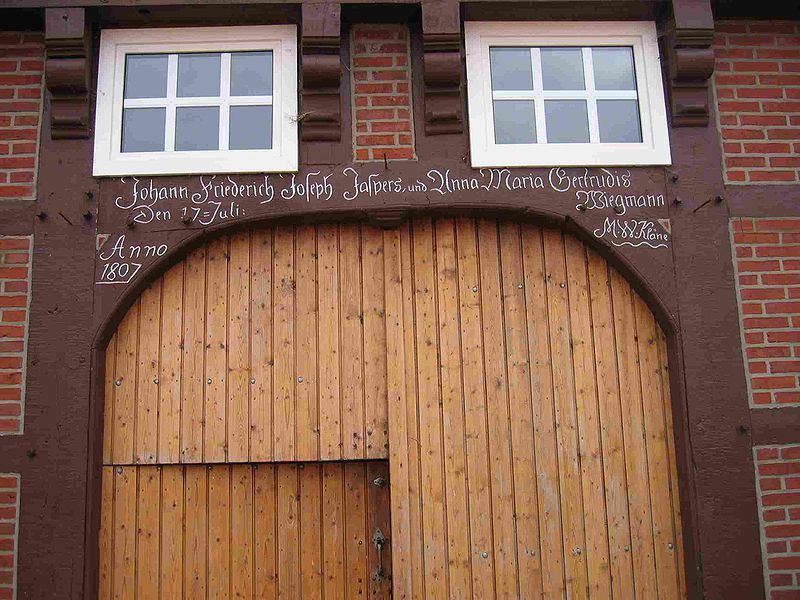 Johann Friederich Joseph Jaspers, und Anna Maria Gertrudis
Wiegmann
Den 17=Juli:
M.W.Kläne
Anno
1807